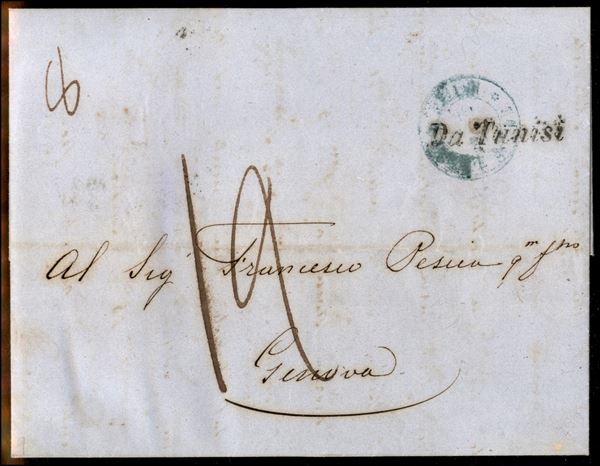 8
Da Tunisi
Al Sig.r Francesco Pescia q.m
Genova